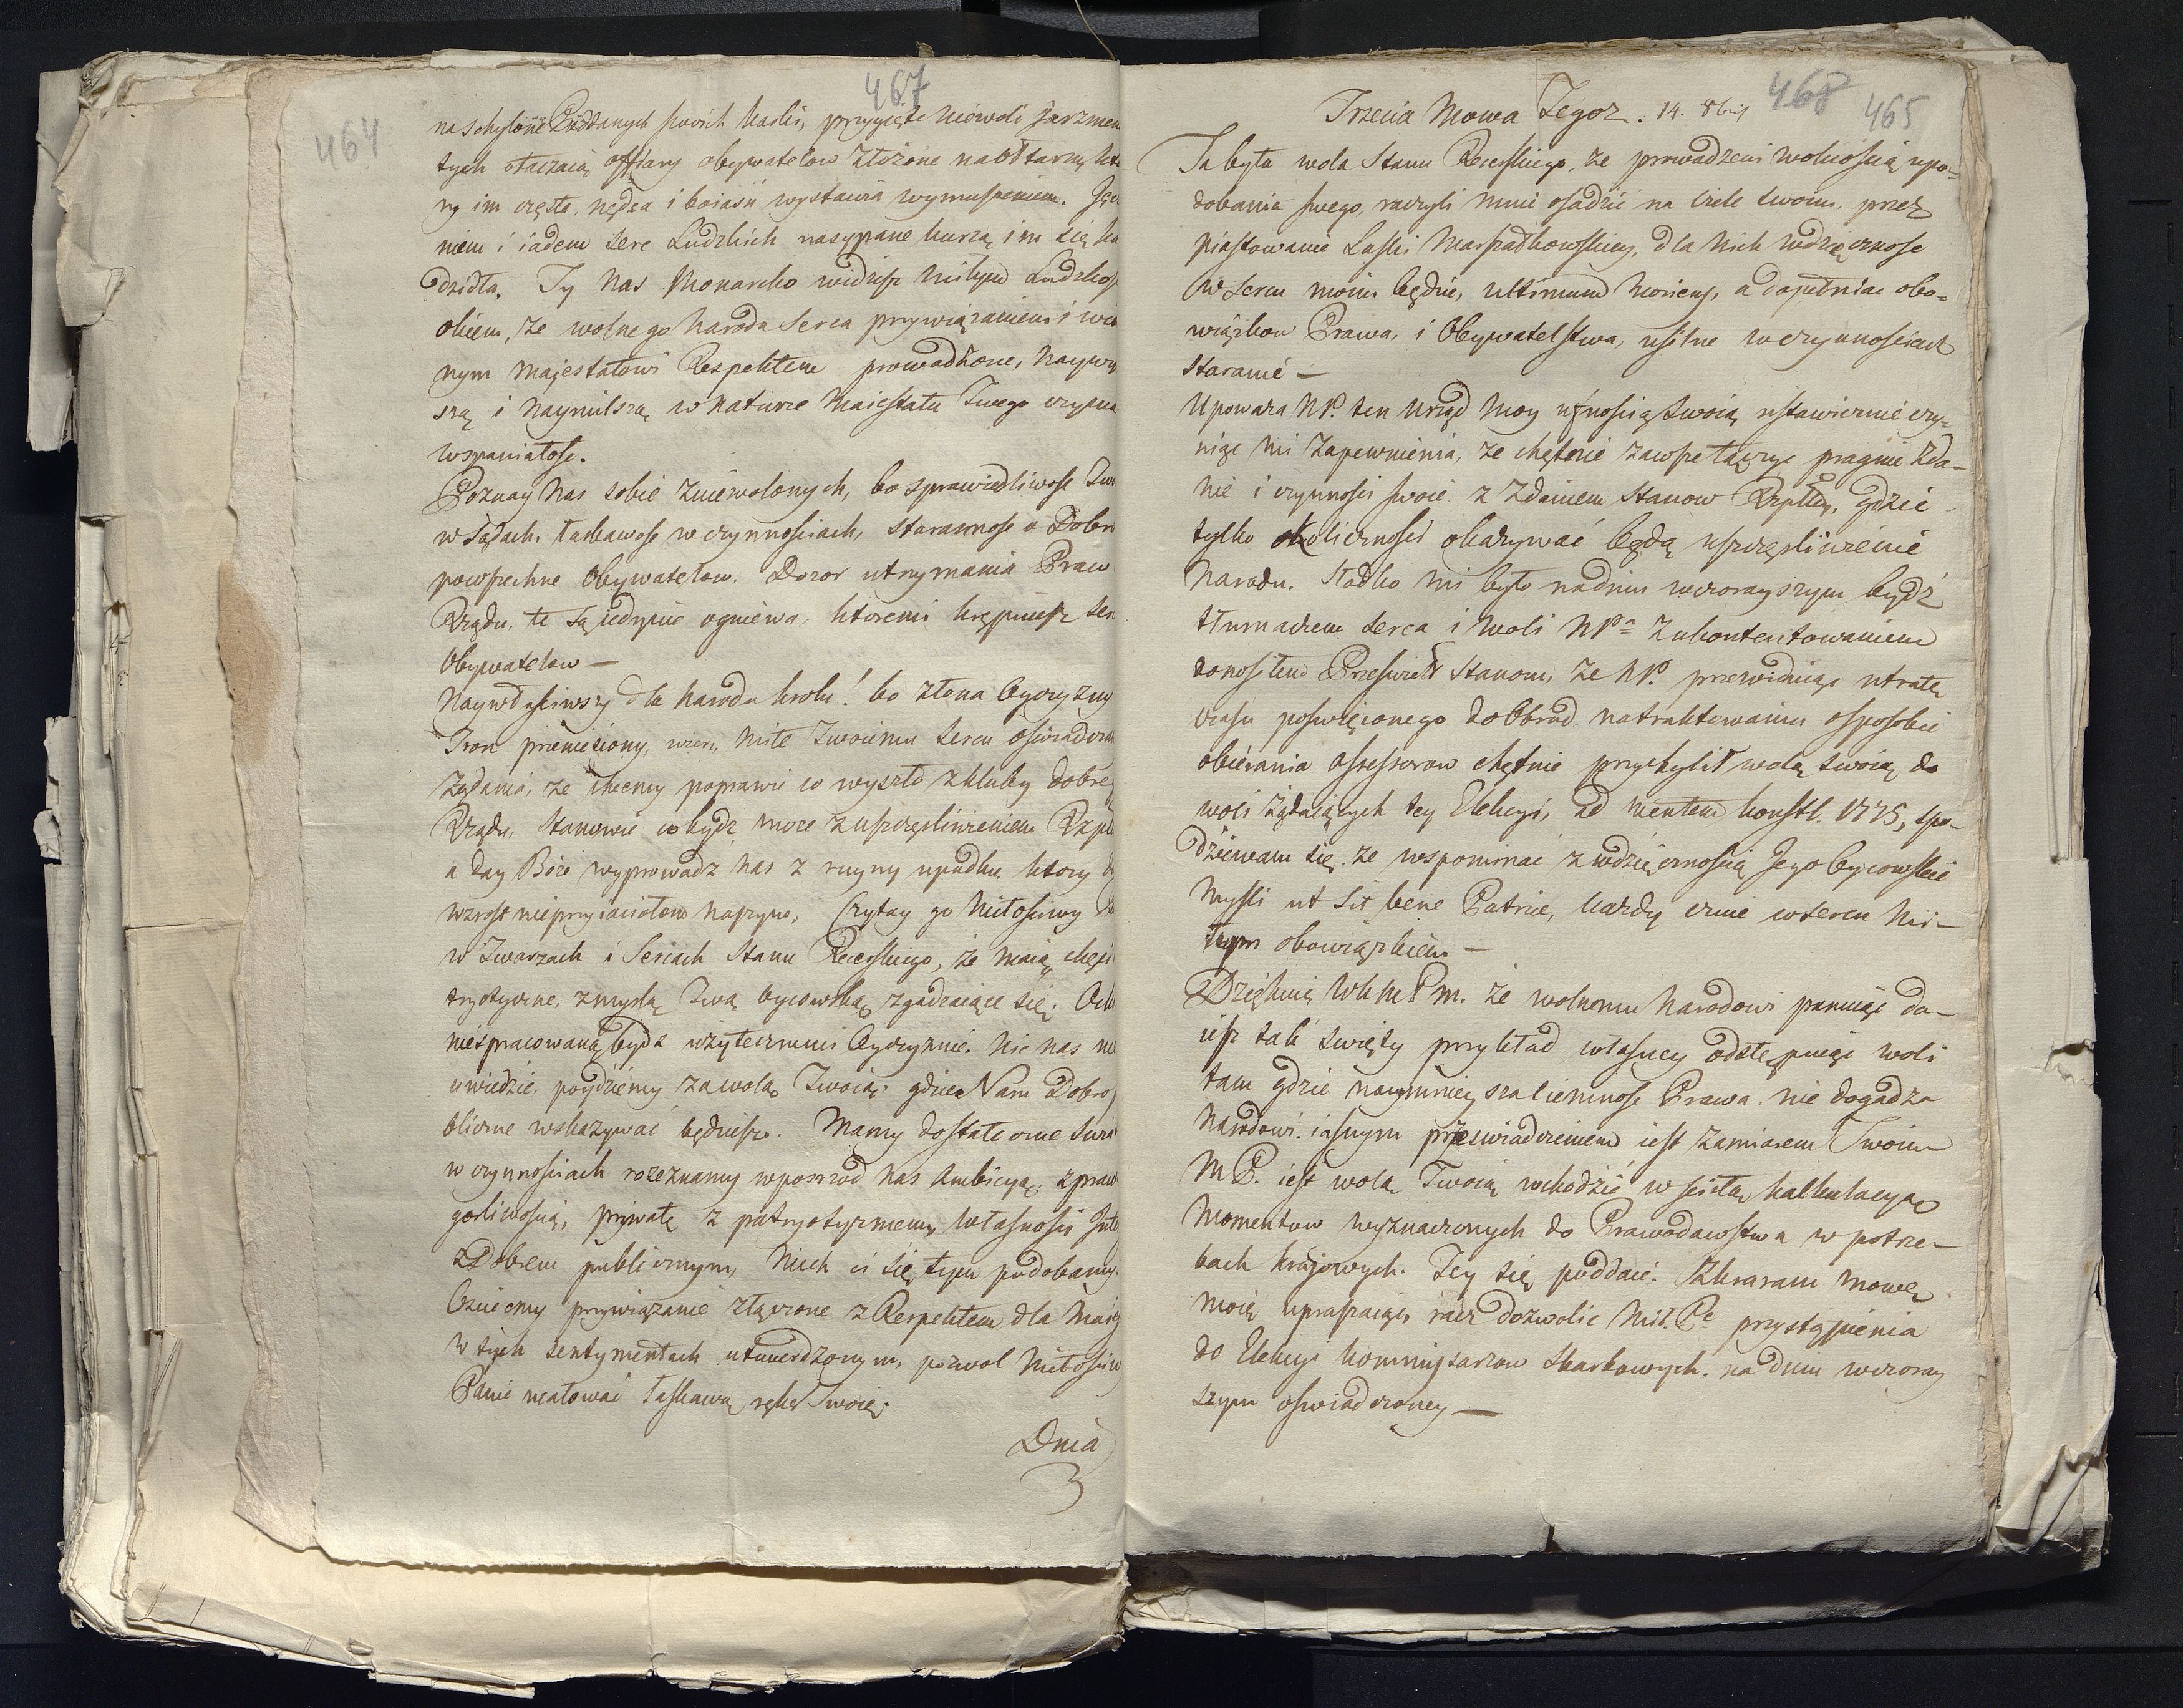 467
464
na schylone Poddanych swoich karki, przygięte niewoli Jarzmem
tych otaczaią offiary obywatelow złożone na ołtarzu, kto
ry im często, nędza i boiaśń wystawia wymuszeniem. Ję
niem i iadem serc Ludzkich nasypane kurzą im się ka
dzidła. Ty nas Monarcho widzisz miłym Ludzkoś
okiem, że wolnego narodu serca przywiązaniem i win
nym majestatowi Respektem prowadzone, naywyż
szą i naymilszą w naturze Maiestatu Twego czynią
wspaniałość.
Poznay nas sobie zniewolonych, bo sprawiedliwość Twa
w sądach, łaskawość w czynnościach, staranność o Dobro
powszechne Obywatelow. Dozor utrzymania Praw
Rządu, te są iedynie ogniewa, ktoremi krępuiesz ser
Obywatelow —
Naywłaściwszy dla Narodu krolu! bo z łona Oyczyzny
Tron przeniesiony, wierz, miłe Twoiemu sercu oświadczam
żądania, że chcemy poprawić co wyszło z kluby dobrey
Rządu, stanowić co bydź może z uszczęśliwieniem Rzpl
a day Boże wyprowadź nas z ruyny upadku ktory
wzrost nieprzyiaciołom naszym, Czytay go Miłościwy
w Twarzach i Sercach Stanu Rycerskiego, że maią chęci
tryotyczne, z myślą Twą oycowską zgadzaiące się.
niespracowaną bydź użytecznemi Oyczyznie. Nic nas nie
uwiedzie, poydziemy za wolą Twoią gdzie Nam Dobro
bliczne wskazywać będziesz. Mamy dostateczne
w czynnościach rozeznamy wpośrzod nas Ambicyą z praw
gorliwością, prywatę z patryotyzmem, własność Int
z Dobrem publicznym, Niech ci się tym podobamy.
Czuiemy przywiązanie złączone z Respektem dla Maie
w tych sentymentach utwierdzonym, pozwol Miłościw
Panie ucałować łaskawą rękę Twoię.
Dnia
468
465
Trzecia Mowa Tegoż. 14. 8bris
Ta była wola Stanu Rycerskiego, że prowadzeni wolnością upo=
dobania swego, raczyli mnie osadzić na czele swoim, przez
piastowanie Laski Marszałkowskiey, dla nich wdzięczność
w sercu moim będzie, ultimum moriens, a dopełniać obo=
wiązkow Prawa, i Obywatelstwa, usilne w czynnościach
staranie —
Upoważa NP. ten Urząd moy ufnością swoią ustawicznie czy=
niąc mi zapewnienia, że chętnie zawsze łączyć pragnie zda—
nie i czynności swoie z zdaniem Stanow Rzpltey, gdzie
tylko okoliczności okazywać będą uszczęśliwienie
Narodu. Słodko mi było na dniu wczorayszym bydź
tłumaczem serca i woli NPa z ukontentowaniem
donosiłem Przeświet Stanom, że NP. przewiduiąc utratę
czasu poświęconego do Obrad na traktowaniu o sposobie
obierania Assessorow chętnie przychylił wolą swoią do
woli żądaiących tey Elekcyi, ad mentem konstt. 1775, spo—
dziewam się, że wspominać z wdzięcznością Jego Oycowskie
myśli ut sit bene Patrie, każdy czuie w sercu mi—
łym obowiązkiem —
Dziękuię WKMPm. że wolnemu narodowi panuiąc da—
iesz tak święty przykład własney odstępuiąc woli
tam gdzie naymnieysza ciemność Prawa, nie dogadza
Narodowi. iasnym przeświadczeniem iest zamiarem Twoim
M P. iest wolą Twoią wchodzić w ścisłą kalkulacyą
Momentow wyznaczonych do Prawodawstwa w potrze—
bach kraiowych. Tey się poddaię. Skracam mowę
moię upraszaiąc, racz dozwolić Mił. Pe przystąpienia
do Elekcyi kommissarzow skarbowych. na dniu wczoray
szym oświadczoney —